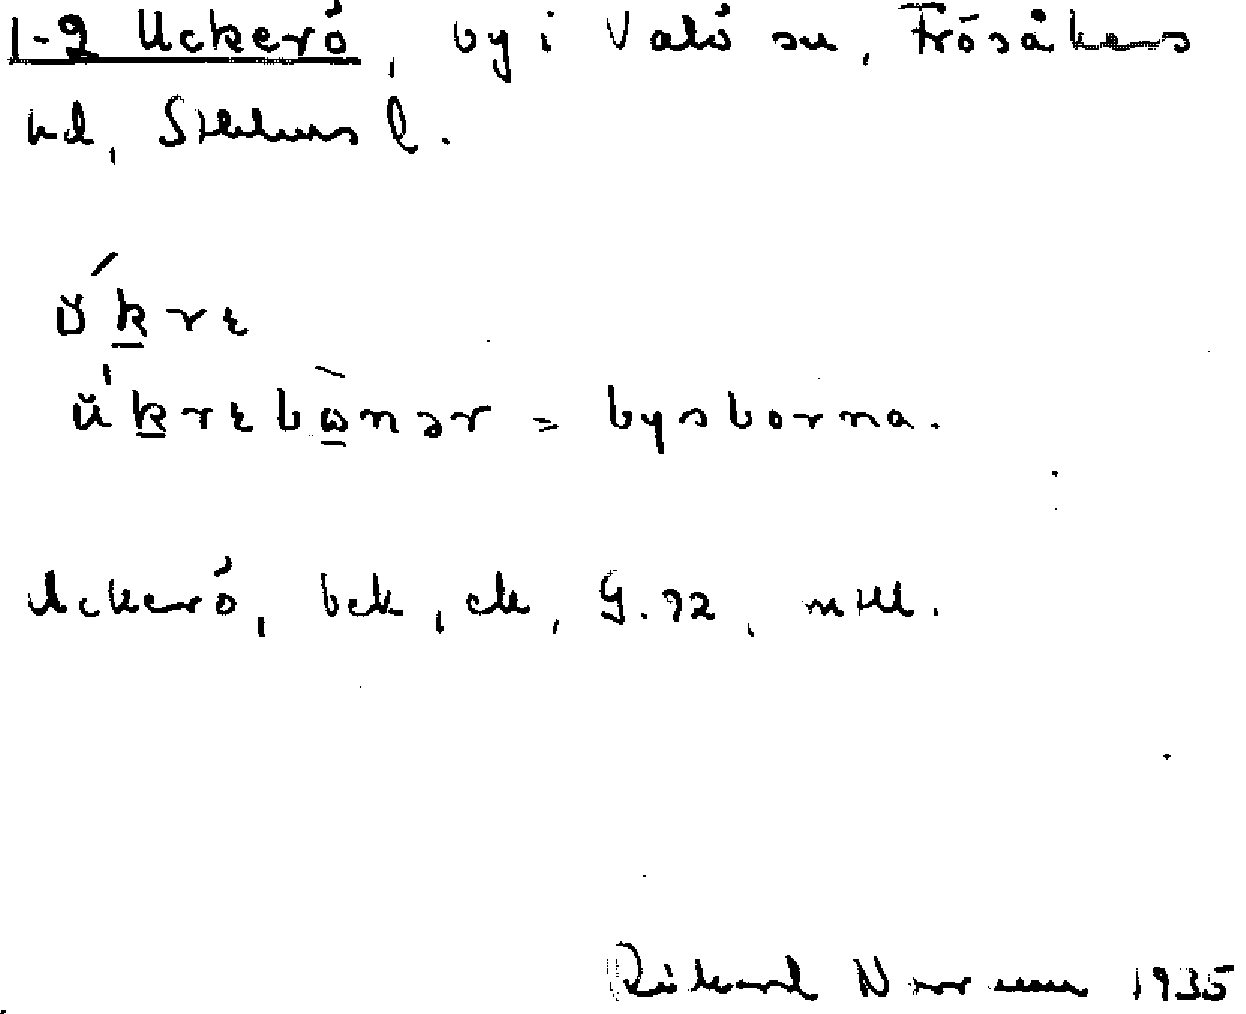 1-2 Uckerö, by i Valö sn, Frösåkers
hd, Sthlms l.
ŭ́krɛ
ŭ́krɛbònər = bysborna.
Uckerö, bek, ek, G. 72,
Rikard Norrman 1935